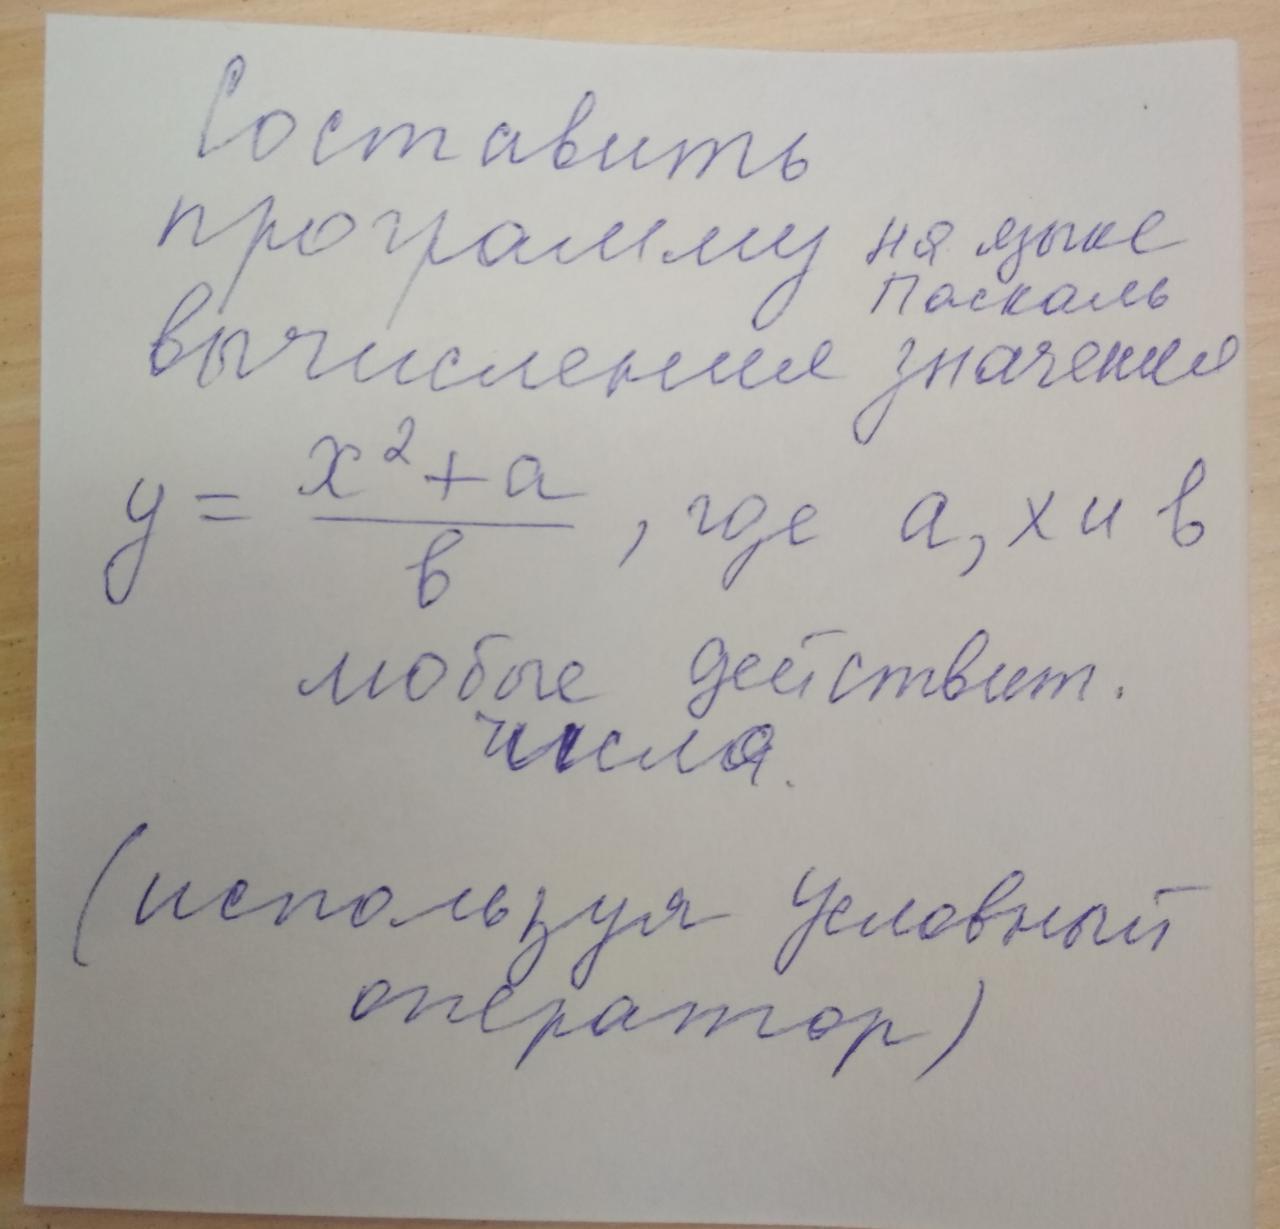 Составить
программу на языке
Паскаль
вычисления значения
y = x² + a / b , где a, x и b
любые действит.
числа.
(используя условный
оператор)